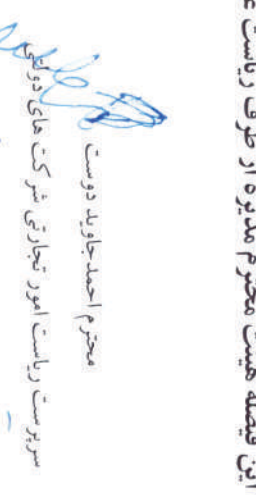 این فیصله هیئت محترم مدیره از طرف ریاست
محترم احمد جاوید دوست
سرپرست ریاست امور تجارتی شرکت های دولتی